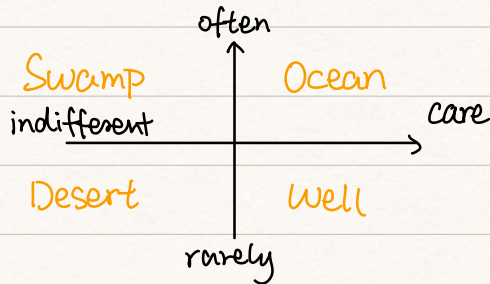 often
Swamp Ocean
indifferent care
Desert Well
rarely